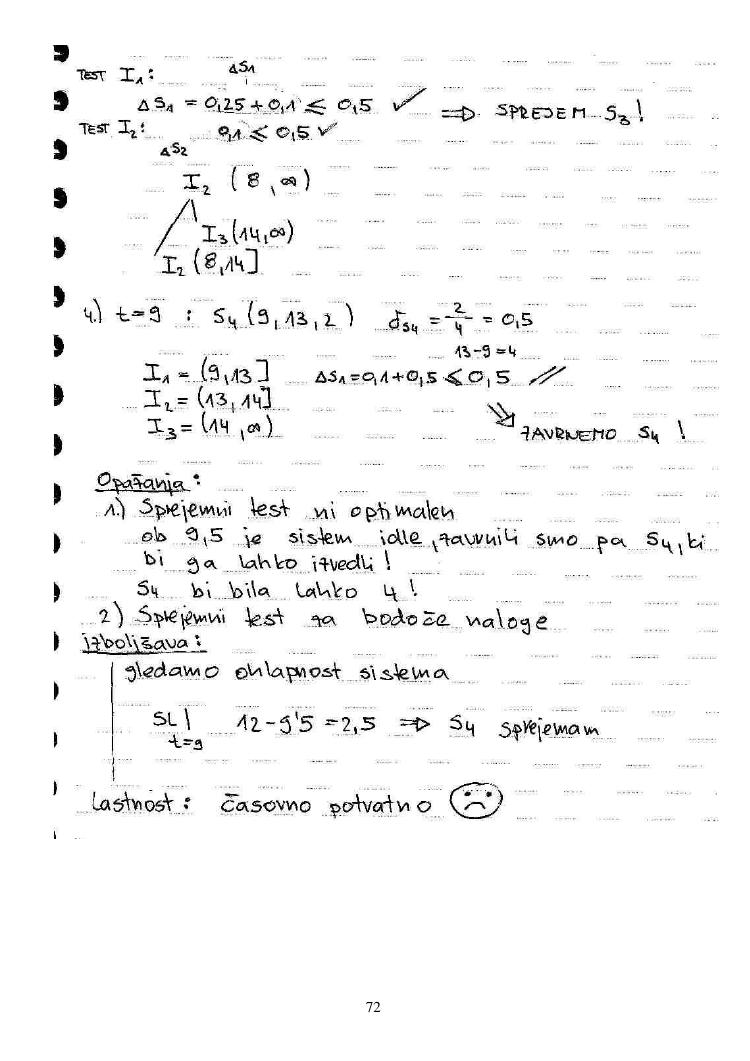 ΔS1
TEST I1:
ΔS1 = 0,25 + 0,1 ≤ 0,5 ✓ ⇒ SPREJEM S3!
TEST I2: 0,1 ≤ 0,5 ✓
ΔS2
I2 (8, ∞)
I3 (14,∞)
I2 (8,14]
4.) t=9 : S4 (9,13,2) δS4 = 2/4 = 0,5
13-9=4
I1 = (9,13] ΔS1=0,1+0,5 ≤ 0,5 //
I2 = (13,14]
I3 = (14,∞) ZAVRNEMO S4 !
Opažanja:
1.) Sprejemni test ni optimalen
ob 9,5 je sistem idle, zavrnili smo pa S4, ki
bi ga lahko izvedli!
S4 bi bila lahko 4!
2) Sprejemni test za bodoče naloge
izboljšava:
gledamo ohlapnost sistema
SL| 12-9'5 = 2,5 ⇒ S4 sprejemam
t=9
Lastnost: časovno potratno
72